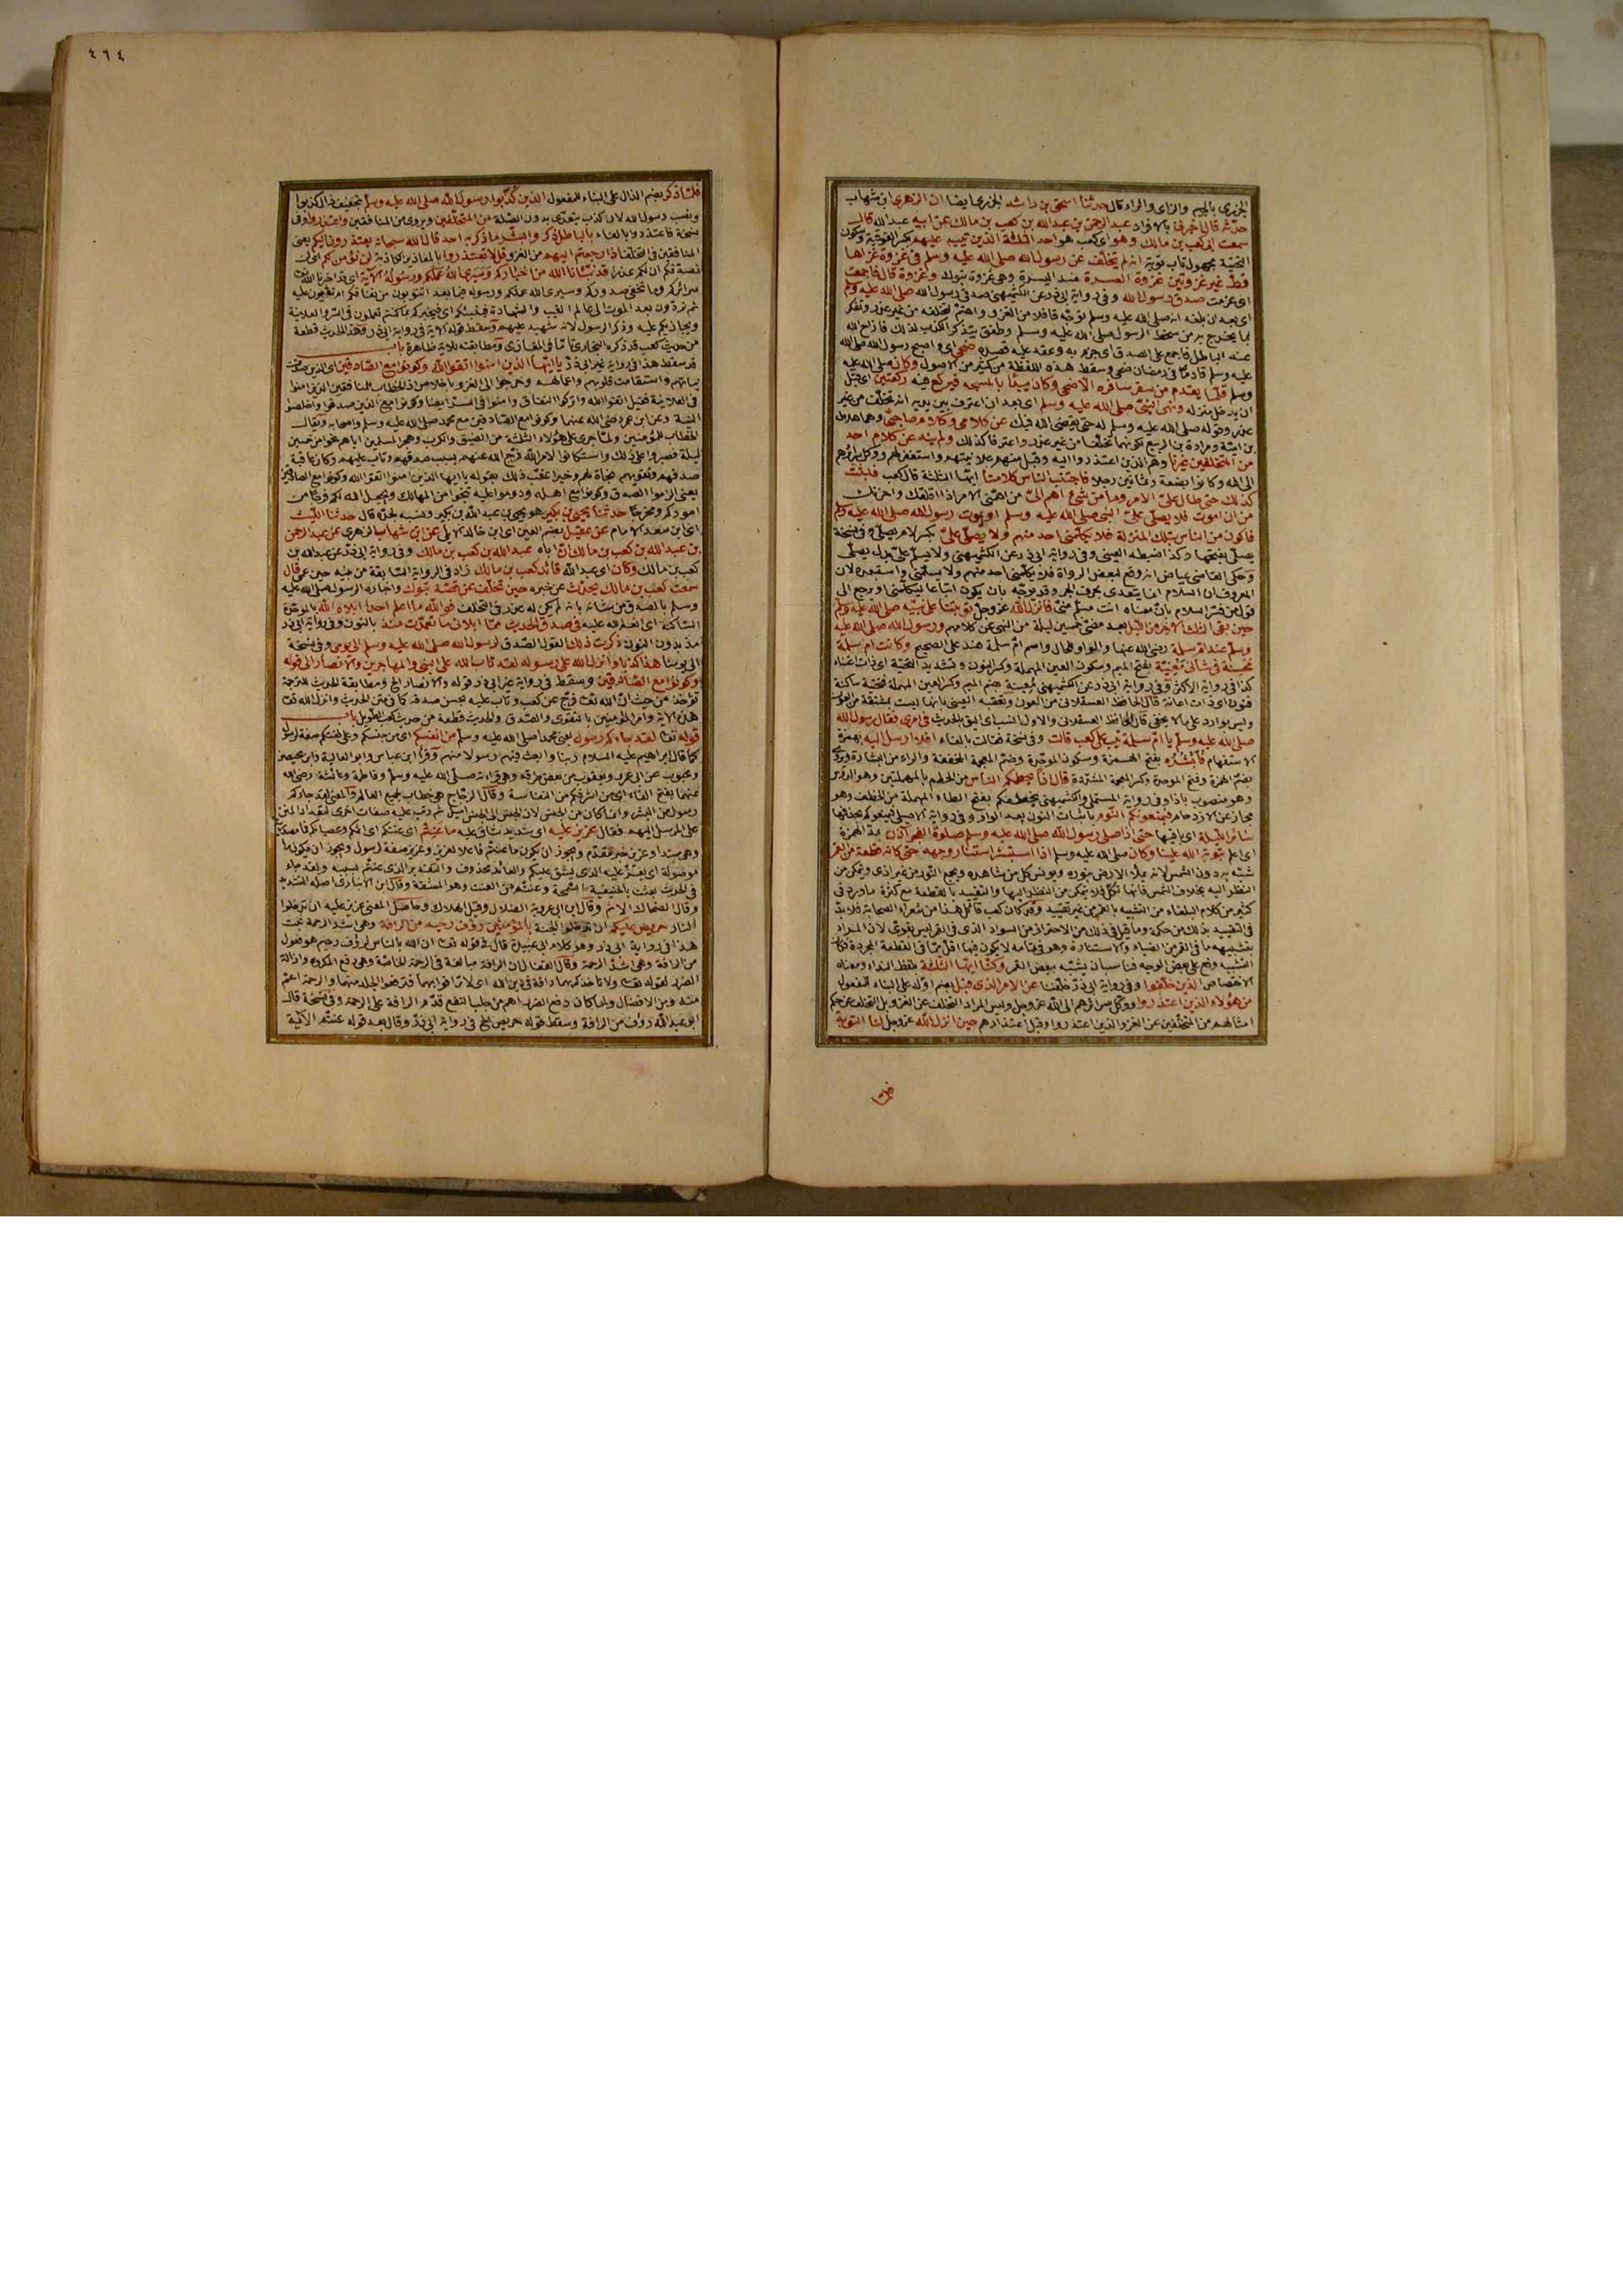 الجزرى بالجيم والزاى والراء قال حدثنا اسحق بن راشد الجزرى ايضا ان الزهرى ابن شهاب
حدثه قال اخبرنى بالافراد عبد الرحمن بن عبد الله بن كعب بن مالك عن ابيه عبد الله قال
سمعت ابى كعب بن مالك وهو اى كعب هو احد الثلثة الذين تيب عليهم بكسر الفوقية وسكون
التحتية مجهول تاب توبة انه لم يتخلف عن رسول الله صلى الله عليه وسلم فى غزوة غزاها
قط غير غزوتين غزوة العسرة ضد اليسرة وهى غزوة تبوك وغزوة قال فاجمعت
اى عزمت صدق رسول الله وفى رواية ابى ذر عن الكشميهنى صدقى رسول الله صلى الله عليه وسلم
اى بعد ان بلغه انه صلى الله عليه وسلم توجه قافلا من الغزو واهتم لتخلفه من غير عذر وتفكر
بما يخرج به من سخط الرسول صلى الله عليه وسلم وطفق يتذكر الكذب لذلك فازاح الله
عنه الباطل فاجمع على الصدق اى جزم به وعقد عليه قصده ضحى اى واصبح رسول الله صلى الله
عليه وسلم قادما فى رمضان ضحى وسقط هذه اللفظة من كثير من الاصول وكان صلى الله عليه
وسلم قلما يقدم من سفر سافره الا ضحى وكان يبدأ بالمسجد فيركع فيه ركعتين اى قبل
ان يدخل منزله ونهى النبى صلى الله عليه وسلم اى بعد ان اعترف بين يديه انه تخلف من غير
عذر وقوله صلى الله عليه وسلم له حتى يقضى الله فيك عن كلامى وكلام صاحبى وهما هلال
بن امية ومرارة بن الربيع لكونهما تخلفا من غير عذر واعترفا كذلك ولم ينه عن كلام احد
من المتخلفين غيرنا وهم الذين اعتذروا اليه وقبل منهم علانيتهم واستغفر لهم ووكل سرائرهم
الى الله وكانوا بضعة وثمانين رجلا فاجتنب الناس كلامنا ايها الثلثة قال كعب فلبثت
كذلك حتى طال على الامر وما من شئ اهم الى من
من ان اموت فلا يصلى على النبى صلى الله عليه وسلم او يموت رسول الله صلى الله عليه وسلم
فاكون من الناس بتلك المنزلة فلا يكلمنى احد منهم ولا يصلى على بكسر لام يصلى وفى نسخة
يصلى بفتحها وكذا ضبطه العينى وفى رواية ابى ذر عن الكشميهنى ولا يسلم على بدل يصلى
وحكى القاضى عياض انه وقع لبعض الرواة فلا يكلمنى احد منهم ولا يسلمنى واستبعده لان
المعروف ان السلام انما يتعدى بحرف الجر وقد يوجه بان يكون اتباعا ليكلمنى او يرجع الى
قول من فسر السلام بان معناه انت مسلم منى فانزل الله عز وجل توبتنا على نبيه صلى الله عليه وسلم
حين بقى الثلث الاخر من الليل بعد مضى خمسين ليلة من النهى عن كلامهم ورسول الله صلى الله عليه
وسلم عند ام سلمة رضى الله عنها والواو للحال واسم ام سلمة هند على الصحيح وكانت ام سلمة
محسنة فى شأنى معنية بفتح الميم وسكون العين المهملة وكسر النون وتشديد التحتية اى ذات اعتناء
كذا فى رواية الاكثر وفى رواية ابى ذر عن الكشميهنى معينة بضم الميم وكسر العين المهملة فتحتية ساكنة
فنون اى ذات اعانة قال الحافظ العسقلانى من العون وتعقبه العينى بانها ليست بمشتقة من العون
وليس بوارد على ما لا يخفى قال الحافظ العسقلانى والاول انسب اى اليق بالحديث فى امرى فقال رسول الله
صلى الله عليه وسلم يا ام سلمة تيب على كعب قالت وفى نسخة فقالت بالفاء افلا ارسل اليه بهمزة
الاستفهام فأبشره بفتح الهمزة وسكون الموحدة وضم المعجمة المخففة والراء من البشارة ويروى
بضم الهمزة وفتح الموحدة وكسر المعجمة المشددة قال اذا يحطمكم الناس من الحطم بالمهملتين وهو الدوس
وهو منصوب باذا وفى رواية المستملى والكشميهنى يخطفكم بفتح الطاء المهملة من الخطف وهو
مجاز عن الازدحام فيمنعونكم النوم باثبات النون بعد الواو وفى رواية الاصيلى فيمنعوكم بحذفها
سائر الليلة اى باقيها حتى اذا صلى رسول الله صلى الله عليه وسلم صلوة الفجر آذن بمد الهمزة
اى اعلم بتوبة الله علينا وكان صلى الله عليه وسلم اذا استبشر استنار وجهه حتى كانه قطعة من القمر
شبه به دون الشمس لانه يملأ الارض بنوره ويونس كل من شاهده ويجمع النور من غير اذى ويتمكن من
النظر اليه بخلاف الشمس فانها تكل فلا يتمكن من النظر اليها والتقييد بالقطعة مع كثرة ما ورد فى
كثير من كلام البلغاء من التشبيه بالقمر من غير تقييد وقد كان كعب قائل هذا من شعراء الصحابة فلا بد
فى التقييد بذلك من حكمة وما قيل فى ذلك من الاحتراز من السواد الذى فى القمر ليس بقوى لان المراد
بتشبيهه ما فى القمر من الضياء والاستنارة وهو فى تمامه لا يكون فيها اقل مما فى القطعة المجردة فكان
التشبيه وقع على بعض الوجه فناسب ان يشبه ببعض القمر وكنا ايها الثلثة بلفظ النداء ومعناه
الاختصاص الذين خلفوا وفى رواية ابى ذر خلفنا عن الامر الذى قبل بضم اوله على البناء للمفعول
من هؤلاء الذين اعتذروا ووكل سرائرهم الى الله عز وجل وليس المراد التخلف عن الغزو بل التخلف عن حكم
امثالهم من المتخلفين عن الغزو الذين اعتذروا وقبل اعتذارهم حين انزل الله عز وجل لنا التوبة
٤٦٤
فلما ذكر بضم الذال على البناء للمفعول الذين كذبوا رسول الله صلى الله عليه وسلم بتخفيف ذال كذبوا
ونصب رسول الله لان كذب يتعدى بدون الصلة من المتخلفين ويروى من المنافقين واعتذروا وفى
نسخة فاعتذروا بالفاء بالباطل ذكروا بشر ما ذكر به احد قال الله سبحانه يعتذرون اليكم يعنى
المنافقين فى التخلف اذا رجعتم اليهم من الغزو قل لا تعتذروا بالمعاذير الكاذبة لن نؤمن لكم اى لن
نصدقكم ان لكم عذرا قد نبأنا الله من اخباركم وسيرى الله عملكم ورسوله الآية اى قد اخبرنا الله
سرائركم وما تخفى صدوركم وسيرى الله عملكم ورسوله فيما بعد اتتوبون من نفاقكم ام تقيمون عليه
ثم تردون بعد الموت الى عالم الغيب والشهادة فينبئكم اى فيخبركم بما كنتم تعملون فى السر والعلانية
ويجازيكم عليه وذكر الرسول لانه شهيد عليهم وسقط قوله الآية فى رواية ابى ذر وهذا الحديث قطعة
من حديث كعب قد ذكره البخارى تاما فى المغازى ومطابقته للآية ظاهرة باب
قد سقط هذا فى رواية غير ابى ذر يا ايها الذين امنوا اتقوا الله وكونوا مع الصادقين اى الذين صدقت
نياتهم واستقامت قلوبهم واعمالهم وخرجوا الى الغزو باخلاص اذ الخطاب للمنافقين الذين امنوا
فى العلانية فقيل اتقوا الله واتركوا النفاق وامنوا فى السر ايضا وكونوا مع الذين صدقوا واخلصوا
النية وعن ابن عمر رضى الله عنهما وكونوا مع الصادقين مع محمد صلى الله عليه وسلم واصحابه ويقال
الخطاب للمؤمنين ولما جرى على هؤلاء الثلثة من الضيق والكرب وهجر المسلمين اياهم نحوا من خمسين
ليلة فصبروا على ذلك واستكانوا لامر الله فرج الله عنهم بسبب صدقهم وتاب عليهم وكان عاقبة
صدقهم وتقويهم نجاة لهم وخيرا عقب ذلك بقوله يا ايها الذين امنوا اتقوا الله وكونوا مع الصادقين
يعنى الزموا الصدق وكونوا مع اهله ودوموا عليه تنجوا من المهالك ويجعل الله لكم فرجا من
اموركم ومخرجا حدثنا يحيى بن بكير هو يحيى بن عبد الله بن بكير ونسبه لجده قال حدثنا الليث
اى ابن سعد الامام عن عقيل بضم العين اى ابن خالد الايلى عن ابن شهاب الزهرى عن عبد الرحمن
بن عبد الله بن كعب بن مالك ان اباه عبد الله بن كعب بن مالك وفى رواية ابى ذر عن عبد الله بن
كعب بن مالك وكان اى عبد الله قائد كعب بن مالك زاد فى الرواية السابقة من بنيه حين عمى قال
سمعت كعب بن مالك يحدث عن خبره حين تخلف عن قصة تبوك واخباره الرسول صلى الله عليه
وسلم بالصدق من شأنه بانه لم يكن له عذر فى التخلف فوالله ما اعلم احدا ابلاه الله بالموحدة
الساكنة اى انعم الله عليه فى صدق الحديث مما ابلانى ما تعمدت منذ بالنون وفى رواية ابى ذر
مذ بدون النون ذكرت ذلك القول الصدق لرسول الله صلى الله عليه وسلم الى يومى وفى نسخة
الى يومنا هذا كذبا وانزل الله على رسوله لقد تاب الله على النبى والمهاجرين والانصار الى قوله
وكونوا مع الصادقين وسقط فى رواية غير ابى ذر قوله والانصار الخ ومطابقة الحديث للترجمة
تؤخذ من حيث ان الله تعالى فرج عن كعب وتاب عليه بحسن صدقه كما فى متن الحديث وانزل الله تعالى
هذه الآية وامر المؤمنين بالتقوى والصدق والحديث قطعة من حديث كعب الطويل باب
قوله تعالى لقد جاءكم رسول يعنى محمدا صلى الله عليه وسلم من انفسكم اى من جنسكم وعلى لغتكم صفة لرسول
كما قال ابراهيم عليه السلام ربنا وابعث فيهم رسولا منهم وقرأ ابن عباس وابو العالية وابن محيصن
ومحبوب عن ابى عمرو ويعقوب من بعض طرقه وهى قراءته صلى الله عليه وسلم وفاطمة وعائشة رضى الله
عنهما بفتح الفاء اى من اشرفكم من النفاسة وقال الزجاج هى خطاب لجميع العالم والمعنى لقد جاءكم
رسول من البشر وانما كان من الجنس لان الجنس الى الجنس اميل ثم رتب عليه صفات اخرى
على المرسل اليهم فقال عزيز عليه اى شديد شاق عليه ما عنتم اى عنتكم اى اثمكم وعصيانكم فما مصدرية
وهى مبتدأ وعزيز خبر مقدم ويجوز ان يكون ما عنتم فاعلا لعزيز وعزيز صفة لرسول ويجوز ان يكون ما
موصولة اى يعز عليه الذى يشق عليكم والعائد محذوف والتقدير الذى عنتم بسببه ولقد جاء
فى الحديث بعثت بالحنيفية السمحة وعنتم من العنت وهو المشقة وقال ابن الانبارى اصله التشديد
وقال الضحاك الاثم وقال ابن ابى عروبة الضلال وقيل الهلاك وحاصل المعنى عزيز عليه ان تدخلوا
النار حريص عليكم ان تدخلوا الجنة بالمؤمنين رؤف رحيم من الرافة وهى اشد الرحمة ثبت
هذا فى رواية ابى ذر وهو كلام ابى عبيدة قال فى قوله تعالى ان الله بالناس لرؤف رحيم هو فعول
من الرافة وهى اشد الرحمة وقال القفال ان الرافة مبالغة فى الرحمة الخاصة وهى دفع المكروه وازالة
الضرر لقوله تعالى ولا تاخذكم بهما رافة فى دين الله اى لا ترأفوا بهما فترفعوا الجلد عنهما والرحمة اعم
منه ومن الافضال ولما كان دفع الضر اهم من جلب النفع قدم الرافة على الرحمة وفى نسخة قال
ابو عبد الله رؤف من الرافة وسقط قوله حريص الخ فى رواية ابى ذر وقال بعد قوله عنتم الآية